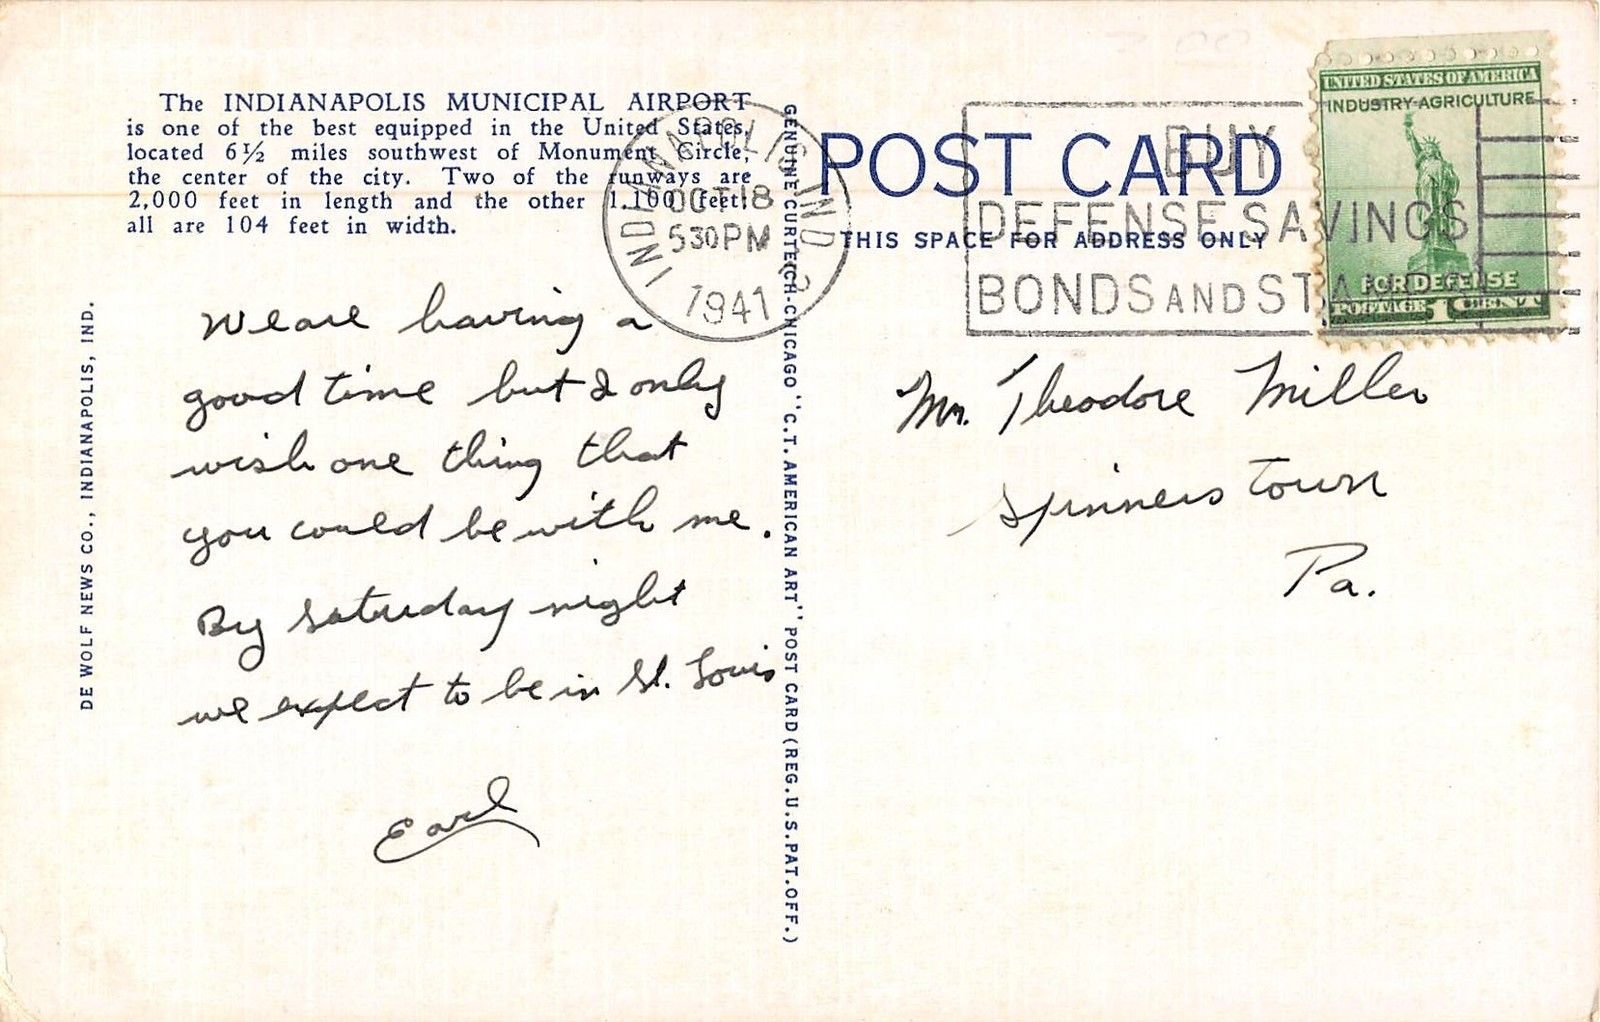 The INDIANAPOLIS MUNICIPAL AIRPORT
is one of the best equipped in the United States,
located 6½ miles southwest of Monument Circle,
the center of the city. Two of the runways are
2,000 feet in length and the other 1,100 feet;
all are 104 feet in width.
INDIANAPOLIS, IND.
OCT 18
530PM
1941
We are having a
good time but I only
wish one thing that
you could be with me.
By Saturday night
we expect to be in St. Louis
Earl
DE WOLF NEWS CO., INDIANAPOLIS, IND.
GENUINE CURTEICH-CHICAGO "C.T. AMERICAN ART" POST CARD (REG. U.S. PAT. OFF.)
POST CARD
THIS SPACE FOR ADDRESS ONLY
BUY
DEFENSE SAVINGS
BONDS AND STAMPS
UNITED STATES OF AMERICA
INDUSTRY-AGRICULTURE
FOR DEFENSE
POSTAGE 1 CENT
Mr. Theodore Miller
Spinners town
Pa.